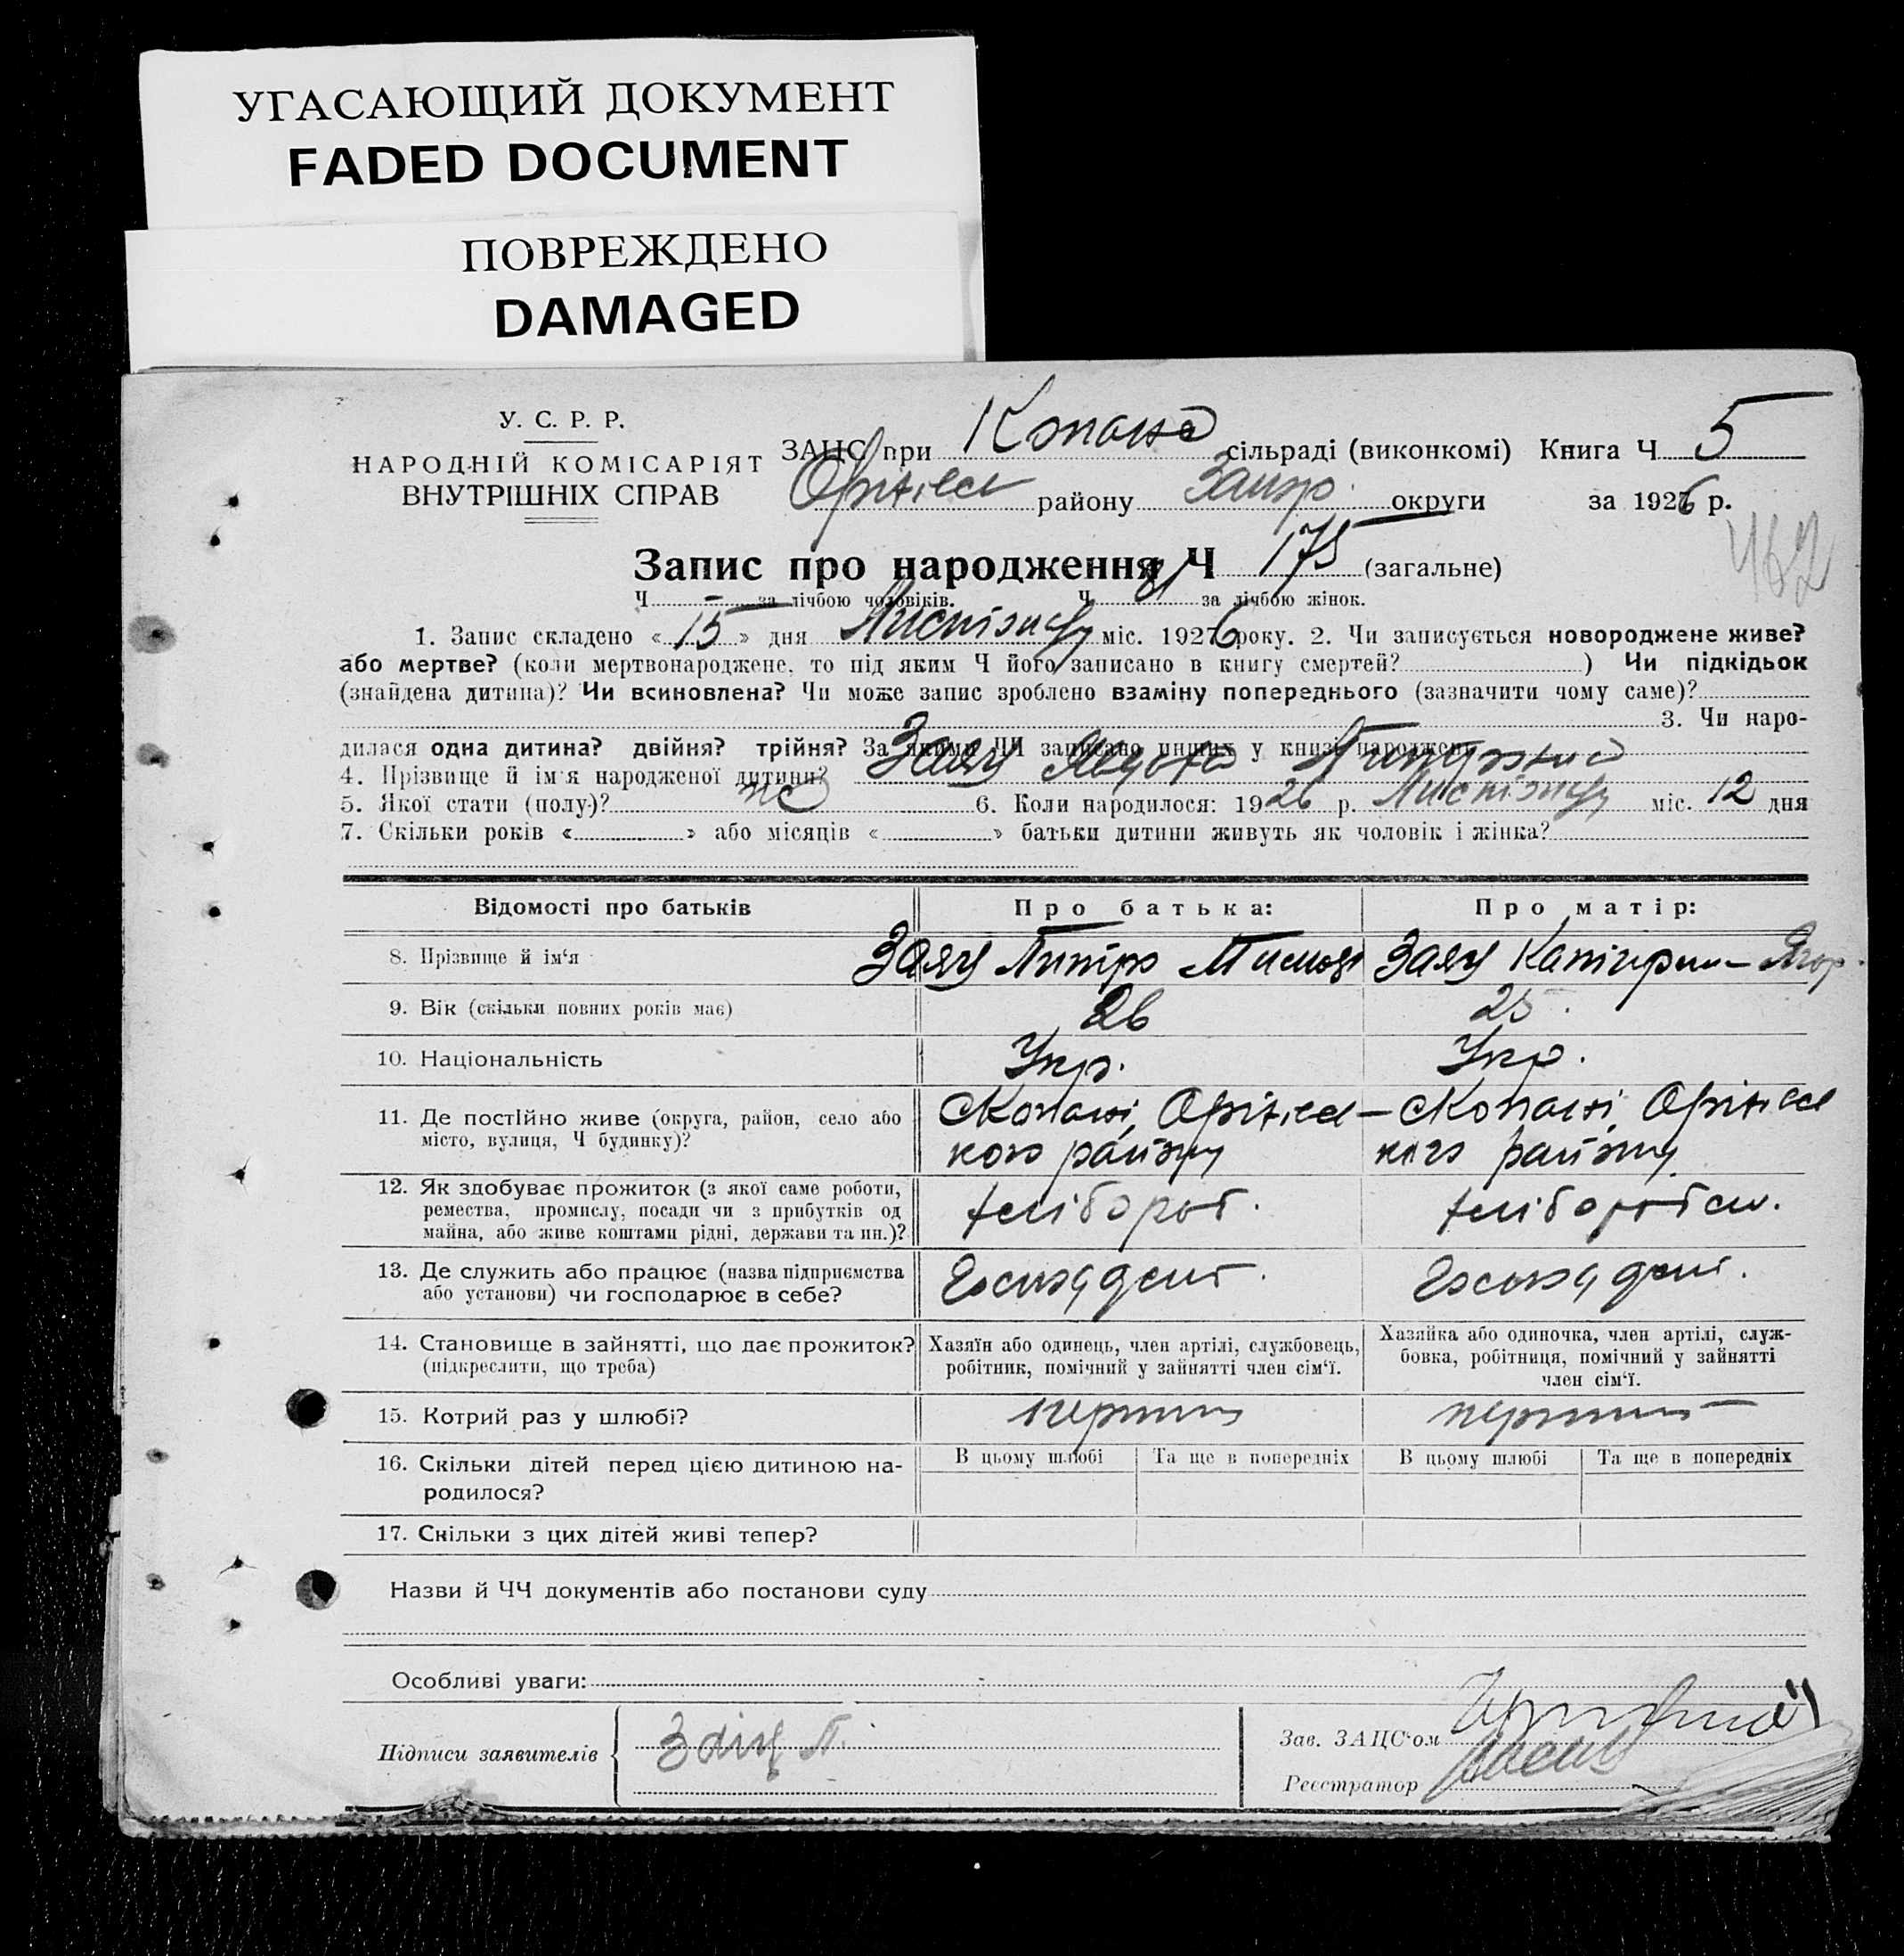 УГАСАЮЩИЙ ДОКУМЕНТ
FADED DOCUMENT
ПОВРЕЖДЕНО
DAMAGED
У. С. Р. Р.
НАРОДНІЙ КОМІСАРІЯТ
ВНУТРІШНІХ СПРАВ
ЗАЦС при сільраді (виконкомі) Книга Ч 5
району Запор. округи за 1926 р.
462
Запис про народження Ч 175 (загальне)
Ч — за лічбою чоловіків. Ч за лічбою жінок.
1. Запис складено « 15 » дня Листопаду міс. 1926 року. 2. Чи записується новороджене живе?
або мертве? (коли мертвонароджене, то під яким Ч його записано в книгу смертей? ) Чи підкідьок
(знайдена дитина)? Чи всиновлена? Чи може запис зроблено взаміну попереднього (зазначити чому саме)?
3. Чи наро-
дилася одна дитина? двійня? трійня? За якими ЧЧ записано инших у книзі народжень
4. Прізвище й ім'я народженої дитини? Заяц
5. Якої стати (полу)? жс 6. Коли народилося: 1926 р. Листопаду міс. 12 дня
7. Скільки років « » або місяців « » батьки дитини живуть як чоловік і жінка?
Відомості про батьків Про батька: Про матір:
8. Прізвище й ім'я Заяц Питро Заяц Катирина Ягор.
9. Вік (скільки повних років має) 26 25.
10. Національність Укр. Укр.
11. Де постійно живе (округа, район, село або Копані Оріхівсь- Копані Оріхівсь
місто, вулиця, Ч будинку)? кого району кого району
12. Як здобуває прожиток (з якої саме роботи,
ремества, промислу, посади чи з прибутків од хлібороб. хлібороб
майна, або живе коштами рідні, держави та ин.)?
13. Де служить або працює (назва підприємства
або установи) чи господарює в себе?
14. Становище в зайнятті, що дає прожиток? Хазяїн або одинець, член артілі, службовець, Хазяйка або одиночка, член артілі, служ-
(підкреслити, що треба) робітник, помічний у зайнятті член сім'ї. бовка, робітниця, помічний у зайнятті
член сім'ї.
15. Котрий раз у шлюбі?
16. Скільки дітей перед цією дитиною на- В цьому шлюбі Та ще в попередніх В цьому шлюбі Та ще в попередніх
родилося?
17. Скільки з цих дітей живі тепер?
Назви й ЧЧ документів або постанови суду
Особливі уваги:
Підписи заявителів Заяц П. Зав. ЗАЦС'ом
Реєстратор